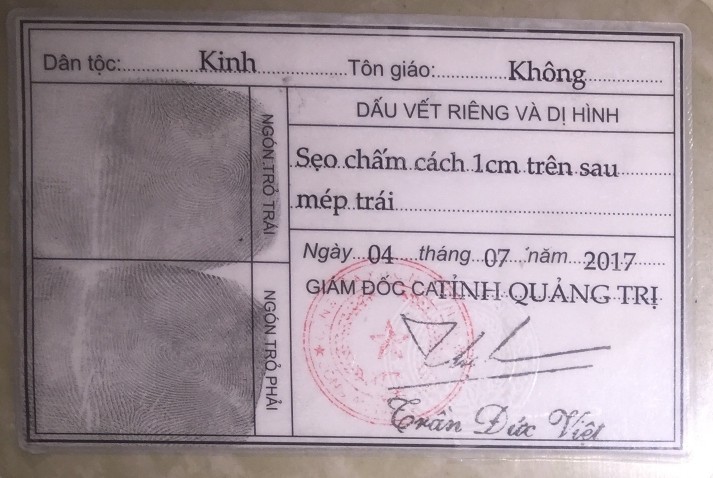 Dân tộc: Kinh Tôn giáo: Không
NGÓN TRỎ TRÁI
NGÓN TRỎ PHẢI
DẤU VẾT RIÊNG VÀ DỊ HÌNH
Sẹo chấm cách 1cm trên sau
mép trái
Ngày 04 tháng 07 năm 2017
GIÁM ĐỐC CA TỈNH QUẢNG TRỊ
Trần Đức Việt